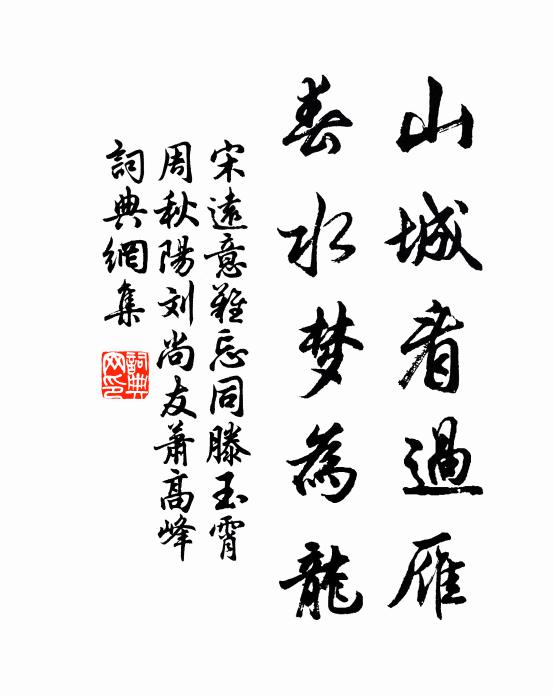 山城看過雁
春水梦為龍
宋遠意難忘同滕玉霄
周秋陽刘尚友蕭高峰
詞典網集
詞典網印